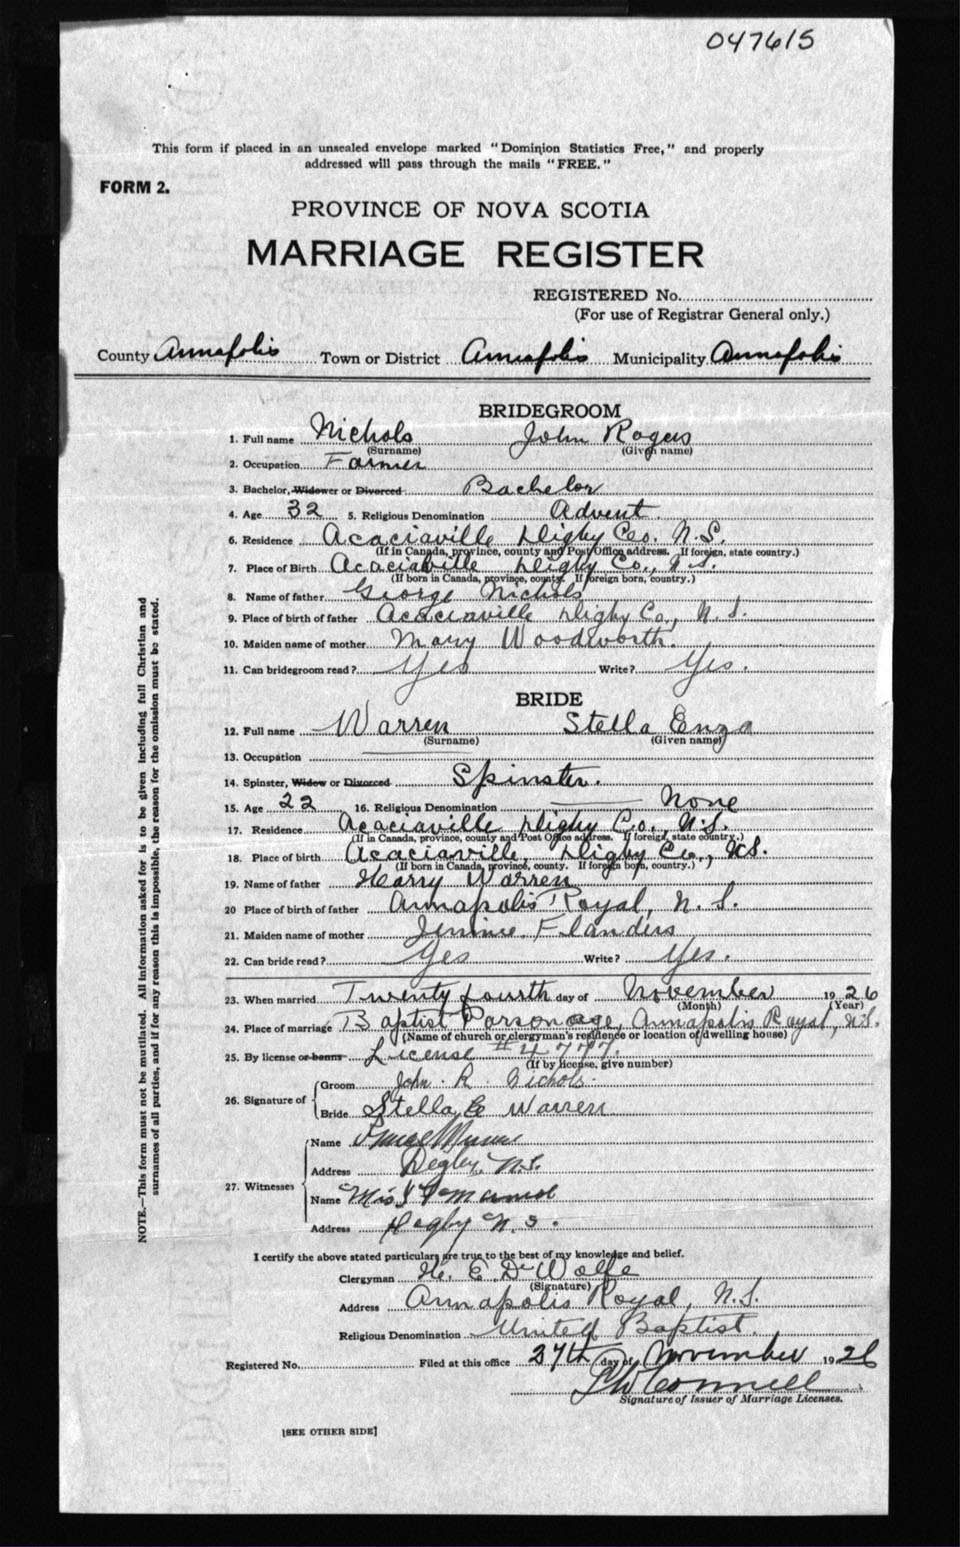 047615
This form if placed in an unsealed envelope marked "Dominion Statistics Free," and properly
addressed will pass through the mails "FREE."
FORM 2.
PROVINCE OF NOVA SCOTIA
MARRIAGE REGISTER
REGISTERED No.
(For use of Registrar General only.)
County Annapolis Town or District Annapolis Municipality Annapolis
BRIDEGROOM
1. Full name Nichols John Rogers
(Surname) (Given name)
2. Occupation Farmer
3. Bachelor, Widower or Divorced Bachelor
4. Age 32 5. Religious Denomination Advent.
6. Residence Acaciaville Digby Co. N.S.
(If in Canada, province, county and Post Office address. If foreign, state country.)
7. Place of Birth Acaciaville Digby Co., N.S.
(If born in Canada, province, county. If foreign born, country.)
8. Name of father George Nichols
9. Place of birth of father Acaciaville Digby Co., N.S.
10. Maiden name of mother Mary Woodworth.
11. Can bridegroom read? Yes Write? Yes.
BRIDE
12. Full name Warren Stella Enza
(Surname) (Given name)
13. Occupation
14. Spinster, Widow or Divorced Spinster.
15. Age 22 16. Religious Denomination None
17. Residence Acaciaville Digby Co., N.S.
(If in Canada, province, county and Post Office address. If foreign, state country.)
18. Place of birth Acaciaville, Digby Co., N.S.
(If born in Canada, province, county. If foreign born, country.)
19. Name of father Harry Warren
20 Place of birth of father Annapolis Royal, N.S.
21. Maiden name of mother Jennie Flanders
22. Can bride read? Yes Write? Yes.
23. When married Twenty fourth day of November 1926
(Month) (Year)
24. Place of marriage Baptist Parsonage, Annapolis Royal, N.S.
(Name of church or clergyman's residence or location of dwelling house)
25. By license or banns License #4777.
(If by license, give number)
26. Signature of
Groom John. R. Nichols.
Bride Stella E Warren
27. Witnesses
Name
Address Digby, N.S.
Name Miss
Address Digby N.S.
I certify the above stated particulars are true to the best of my knowledge and belief.
Clergyman H. E DeWolfe
(Signature)
Address Annapolis Royal, N.S.
Religious Denomination United Baptist.
Registered No. Filed at this office 27th day of November 1926
Connell
Signature of Issuer of Marriage Licenses.
[SEE OTHER SIDE]
NOTE.—This form must not be mutilated. All information asked for is to be given including full Christian and
surnames of all parties, and if for any reason this is impossible, the reason for the omission must be stated.